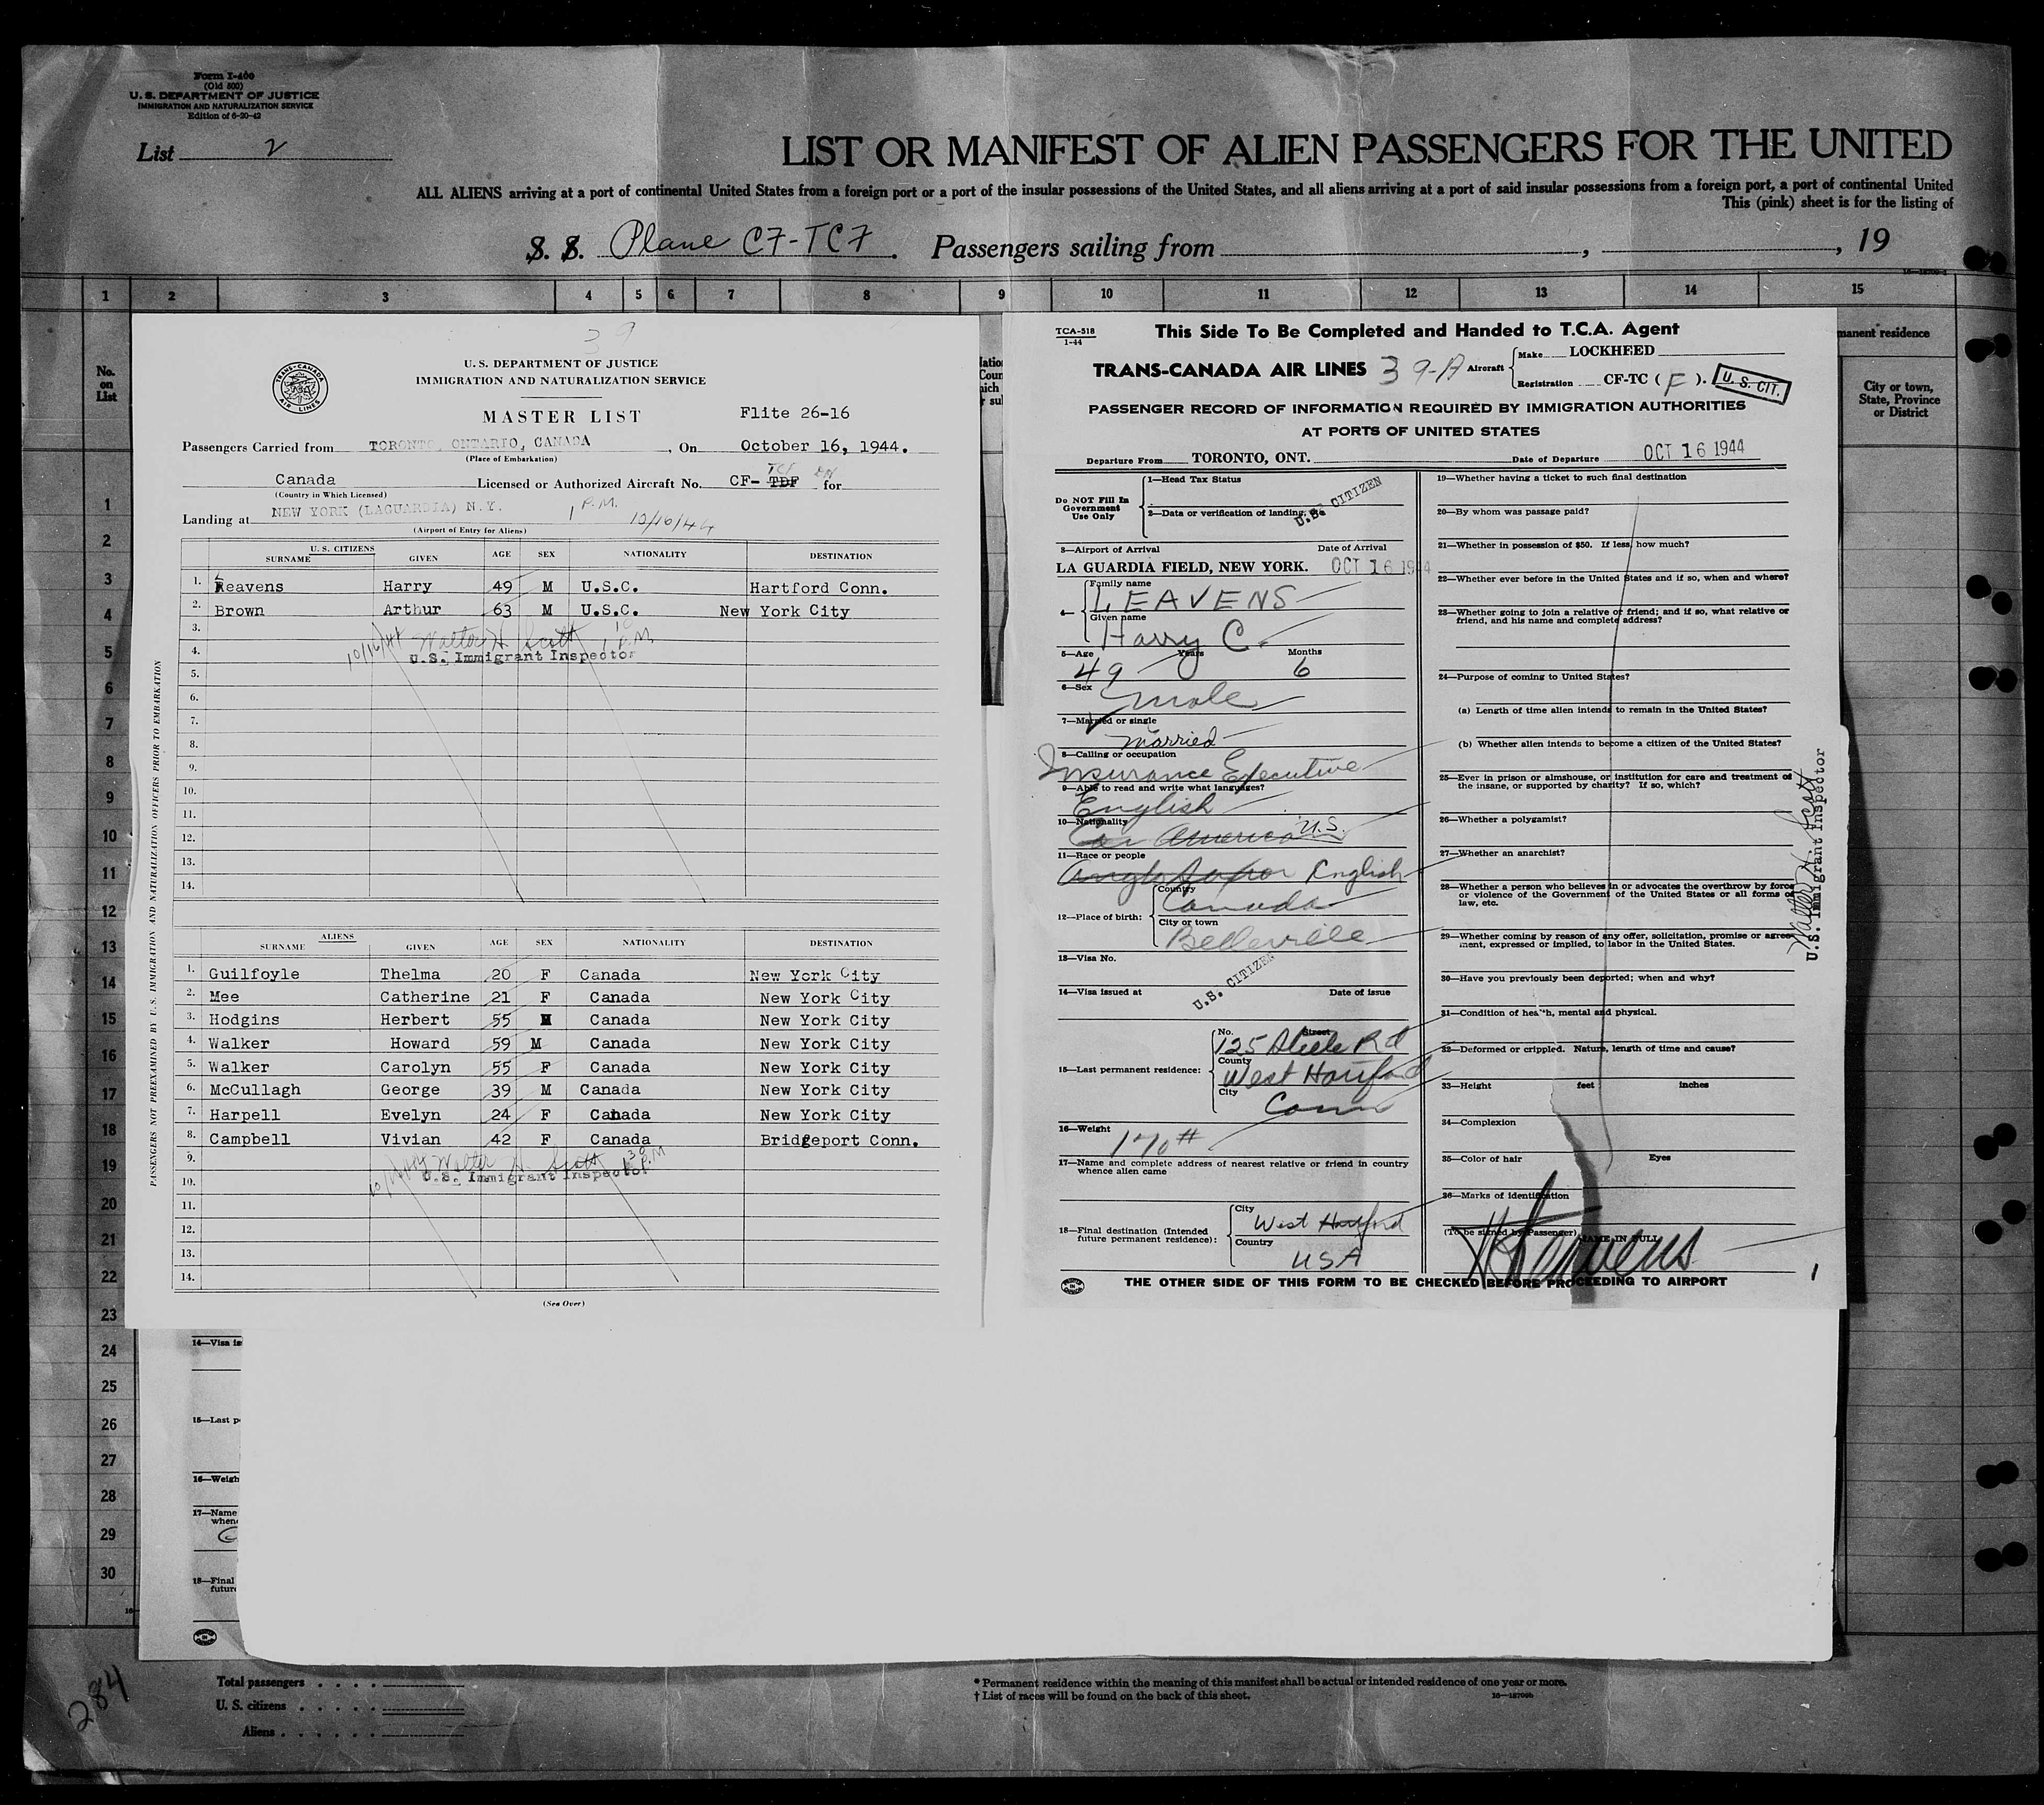 Form I-400
(Old 500)
U. S. DEPARTMENT OF JUSTICE
IMMIGRATION AND NATURALIZATION SERVICE
Edition of 6-20-42
List 2
LIST OR MANIFEST OF ALIEN PASSENGERS FOR THE UNITED
ALL ALIENS arriving at a port of continental United States from a foreign port or a port of the insular possessions of the United States, and all aliens arriving at a port of said insular possessions from a foreign port, a port of continental United
This (pink) sheet is for the listing of
S. S. Plane CF-TCF. Passengers sailing from , , 19
1 2 3 4 5 6 7 8 9 10 11 12 13 14 15
No. on List
manent residence
City or town, State, Province or District
1
2
3
4
5
6
7
8
9
10
11
12
13
14
15
16
17
18
19
20
21
22
23
24
25
26
27
28
29
30
39
TRANS-CANADA AIR LINES
U. S. DEPARTMENT OF JUSTICE
IMMIGRATION AND NATURALIZATION SERVICE
MASTER LIST Flite 26-16
Passengers Carried from TORONTO, ONTARIO, CANADA, On October 16, 1944.
(Place of Embarkation)
Canada Licensed or Authorized Aircraft No. CF- TDF TCF for
(Country in Which Licensed)
Landing at NEW YORK (LAGUARDIA) N.Y. 1 P.M. 10/16/44
(Airport of Entry for Aliens)
U. S. CITIZENS
SURNAME GIVEN AGE SEX NATIONALITY DESTINATION
1. Leavens Harry 49 M U.S.C. Hartford Conn.
2. Brown Arthur 63 M U.S.C. New York City
3.
10/16/44 Walter H. Scott 1 P.M.
4.
U.S. Immigrant Inspector
5.
6.
7.
8.
9.
10.
11.
12.
13.
14.
ALIENS
SURNAME GIVEN AGE SEX NATIONALITY DESTINATION
1. Guilfoyle Thelma 20 F Canada New York City
2. Mee Catherine 21 F Canada New York City
3. Hodgins Herbert 55 M Canada New York City
4. Walker Howard 59 M Canada New York City
5. Walker Carolyn 55 F Canada New York City
6. McCullagh George 39 M Canada New York City
7. Harpell Evelyn 24 F Canada New York City
8. Campbell Vivian 42 F Canada Bridgeport Conn.
9.
Walter H. Scott 130 P.M
10.
U.S. Immigrant Inspector
11.
12.
13.
14.
(See Over)
PASSENGERS NOT PREEXAMINED BY U. S. IMMIGRATION AND NATURALIZATION OFFICERS PRIOR TO EMBARKATION
TCA-518
1-44
This Side To Be Completed and Handed to T.C.A. Agent
TRANS-CANADA AIR LINES 39-A Aircraft Make LOCKHEED
Registration CF-TC ( F ). U. S. CIT.
PASSENGER RECORD OF INFORMATION REQUIRED BY IMMIGRATION AUTHORITIES
AT PORTS OF UNITED STATES
Departure From TORONTO, ONT. Date of Departure OCT 16 1944
Do NOT Fill In Government Use Only
1—Head Tax Status
2—Data or verification of landing:
U.S. CITIZEN
3—Airport of Arrival Date of Arrival
LA GUARDIA FIELD, NEW YORK. OCT 16 1944
4— Family name
LEAVENS
Given name
Harry C.
5—Age Years Months
49 6
6—Sex
male
7—Married or single
married
8—Calling or occupation
Insurance Executive
9—Able to read and write what languages?
English
10—Nationality
America U.S.
11—Race or people
Anglo Saxon English
12—Place of birth: Country
Canada
City or town
Belleville
13—Visa No.
U.S. CITIZEN
14—Visa issued at Date of issue
15—Last permanent residence: No. Street
125 Steele Rd
County
West Hartford
City
Conn
16—Weight
170 #
17—Name and complete address of nearest relative or friend in country whence alien came
18—Final destination (Intended future permanent residence): City
West Hartford
Country
USA
19—Whether having a ticket to such final destination
20—By whom was passage paid?
21—Whether in possession of $50. If less, how much?
22—Whether ever before in the United States and if so, when and where?
23—Whether going to join a relative or friend; and if so, what relative or friend, and his name and complete address?
24—Purpose of coming to United States?
(a) Length of time alien intends to remain in the United States?
(b) Whether alien intends to become a citizen of the United States?
25—Ever in prison or almshouse, or institution for care and treatment of the insane, or supported by charity? If so, which?
26—Whether a polygamist?
27—Whether an anarchist?
28—Whether a person who believes in or advocates the overthrow by force or violence of the Government of the United States or all forms of law, etc.
29—Whether coming by reason of any offer, solicitation, promise or agreement, expressed or implied, to labor in the United States.
30—Have you previously been deported; when and why?
31—Condition of health, mental and physical.
32—Deformed or crippled. Nature, length of time and cause?
33—Height feet inches
34—Complexion
35—Color of hair Eyes
36—Marks of identification
(To be signed by Passenger) NAME IN FULL
H C Leavens
1
THE OTHER SIDE OF THIS FORM TO BE CHECKED BEFORE PROCEEDING TO AIRPORT
Walter H. Scott
U.S. Immigrant Inspector
14—Visa is
15—Last p
16—Weigh
17—Name
when
18—Final
futur
284
Total passengers
U. S. citizens
Aliens
* Permanent residence within the meaning of this manifest shall be actual or intended residence of one year or more.
† List of races will be found on the back of this sheet.